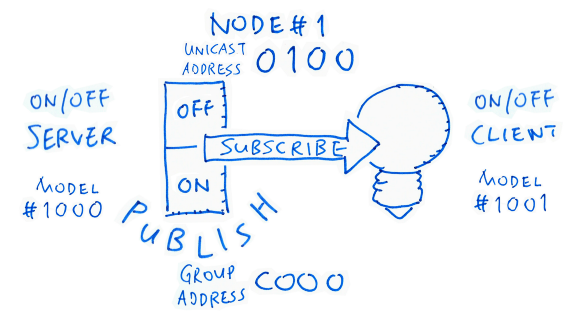 NODE #1
UNICAST
ADDRESS 0100
ON/OFF
SERVER
MODEL
#1000
OFF
SUBSCRIBE
ON
PUBLISH
ON/OFF
CLIENT
MODEL
#1001
GROUP
ADDRESS C000